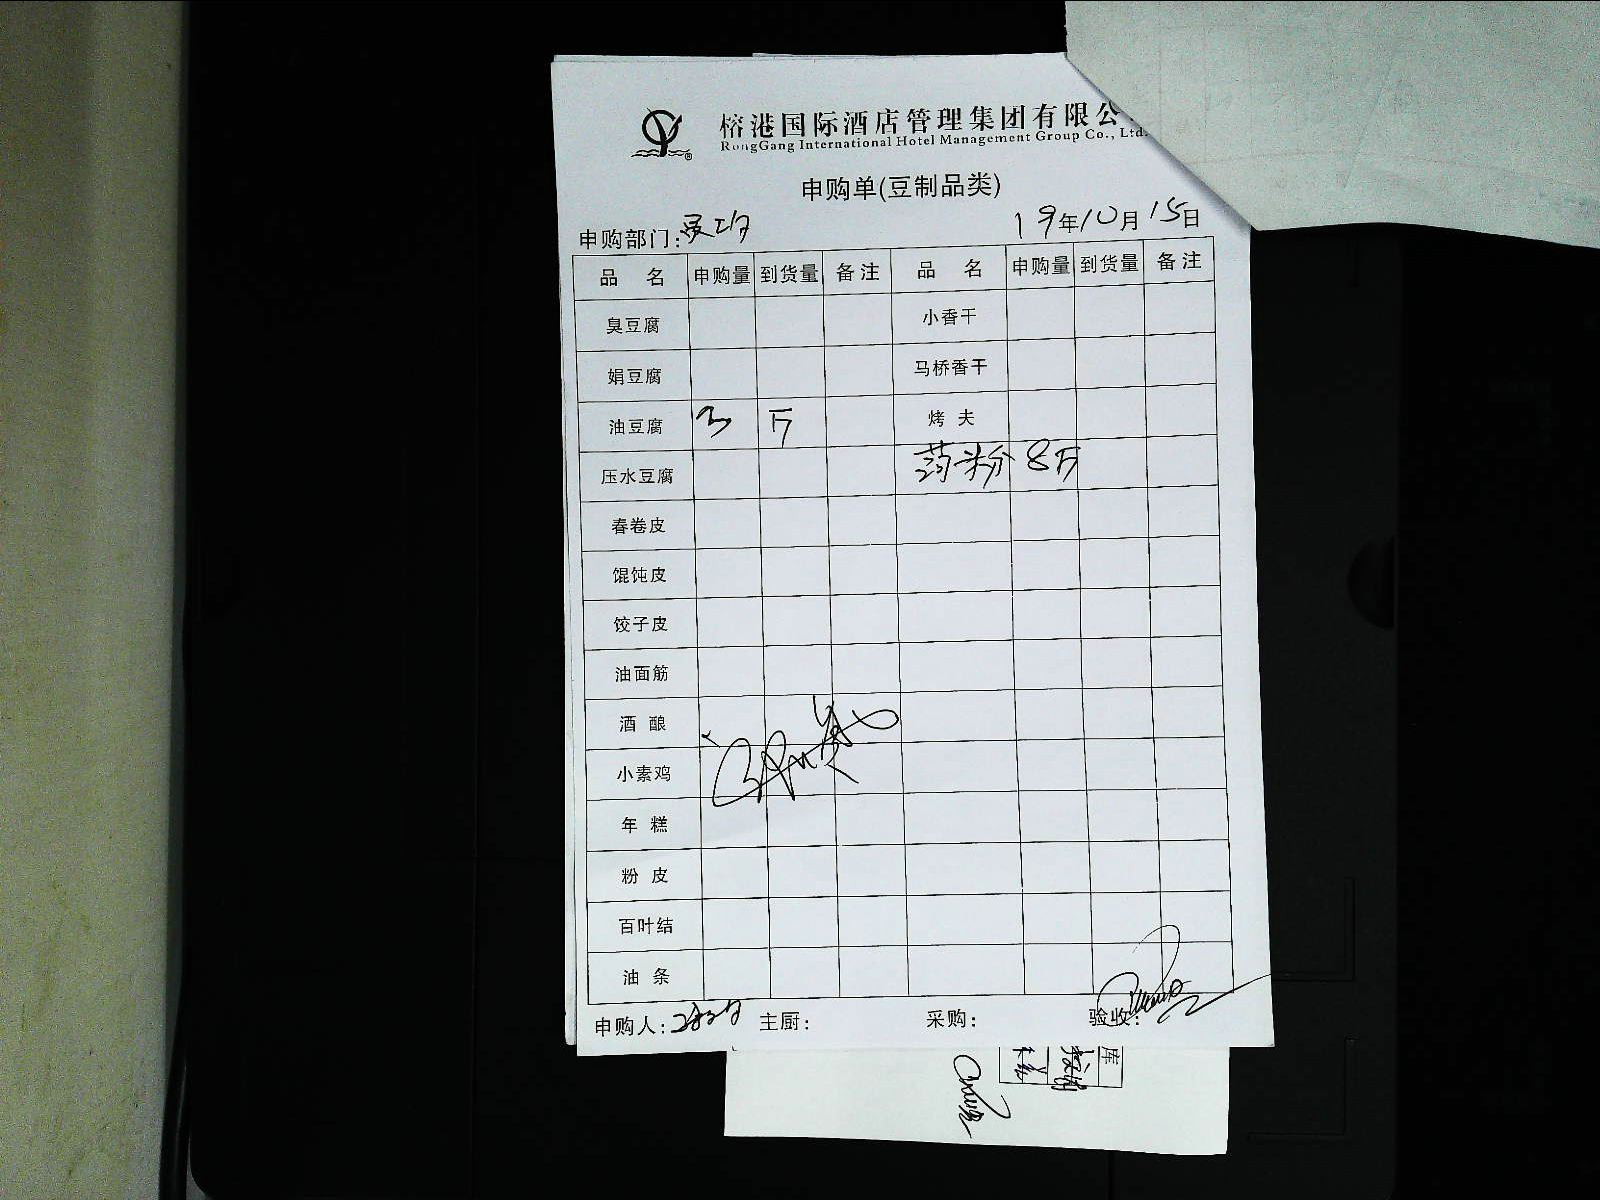 榕港国际酒店管理集团有限公
RongGang International Hotel Management Group Co., Ltd.
®
申购单(豆制品类)
申购部门: 19年10月15日
品 名 申购量 到货量 备注 品 名 申购量 到货量 备注
臭豆腐 小香干
娟豆腐 马桥香干
油豆腐 3 斤 烤 夫
压水豆腐 药粉 8斤
春卷皮
馄饨皮
饺子皮
油面筋
酒 酿
小素鸡
年 糕
粉 皮
百叶结
油 条
申购人: 主厨: 采购: 验收:
库